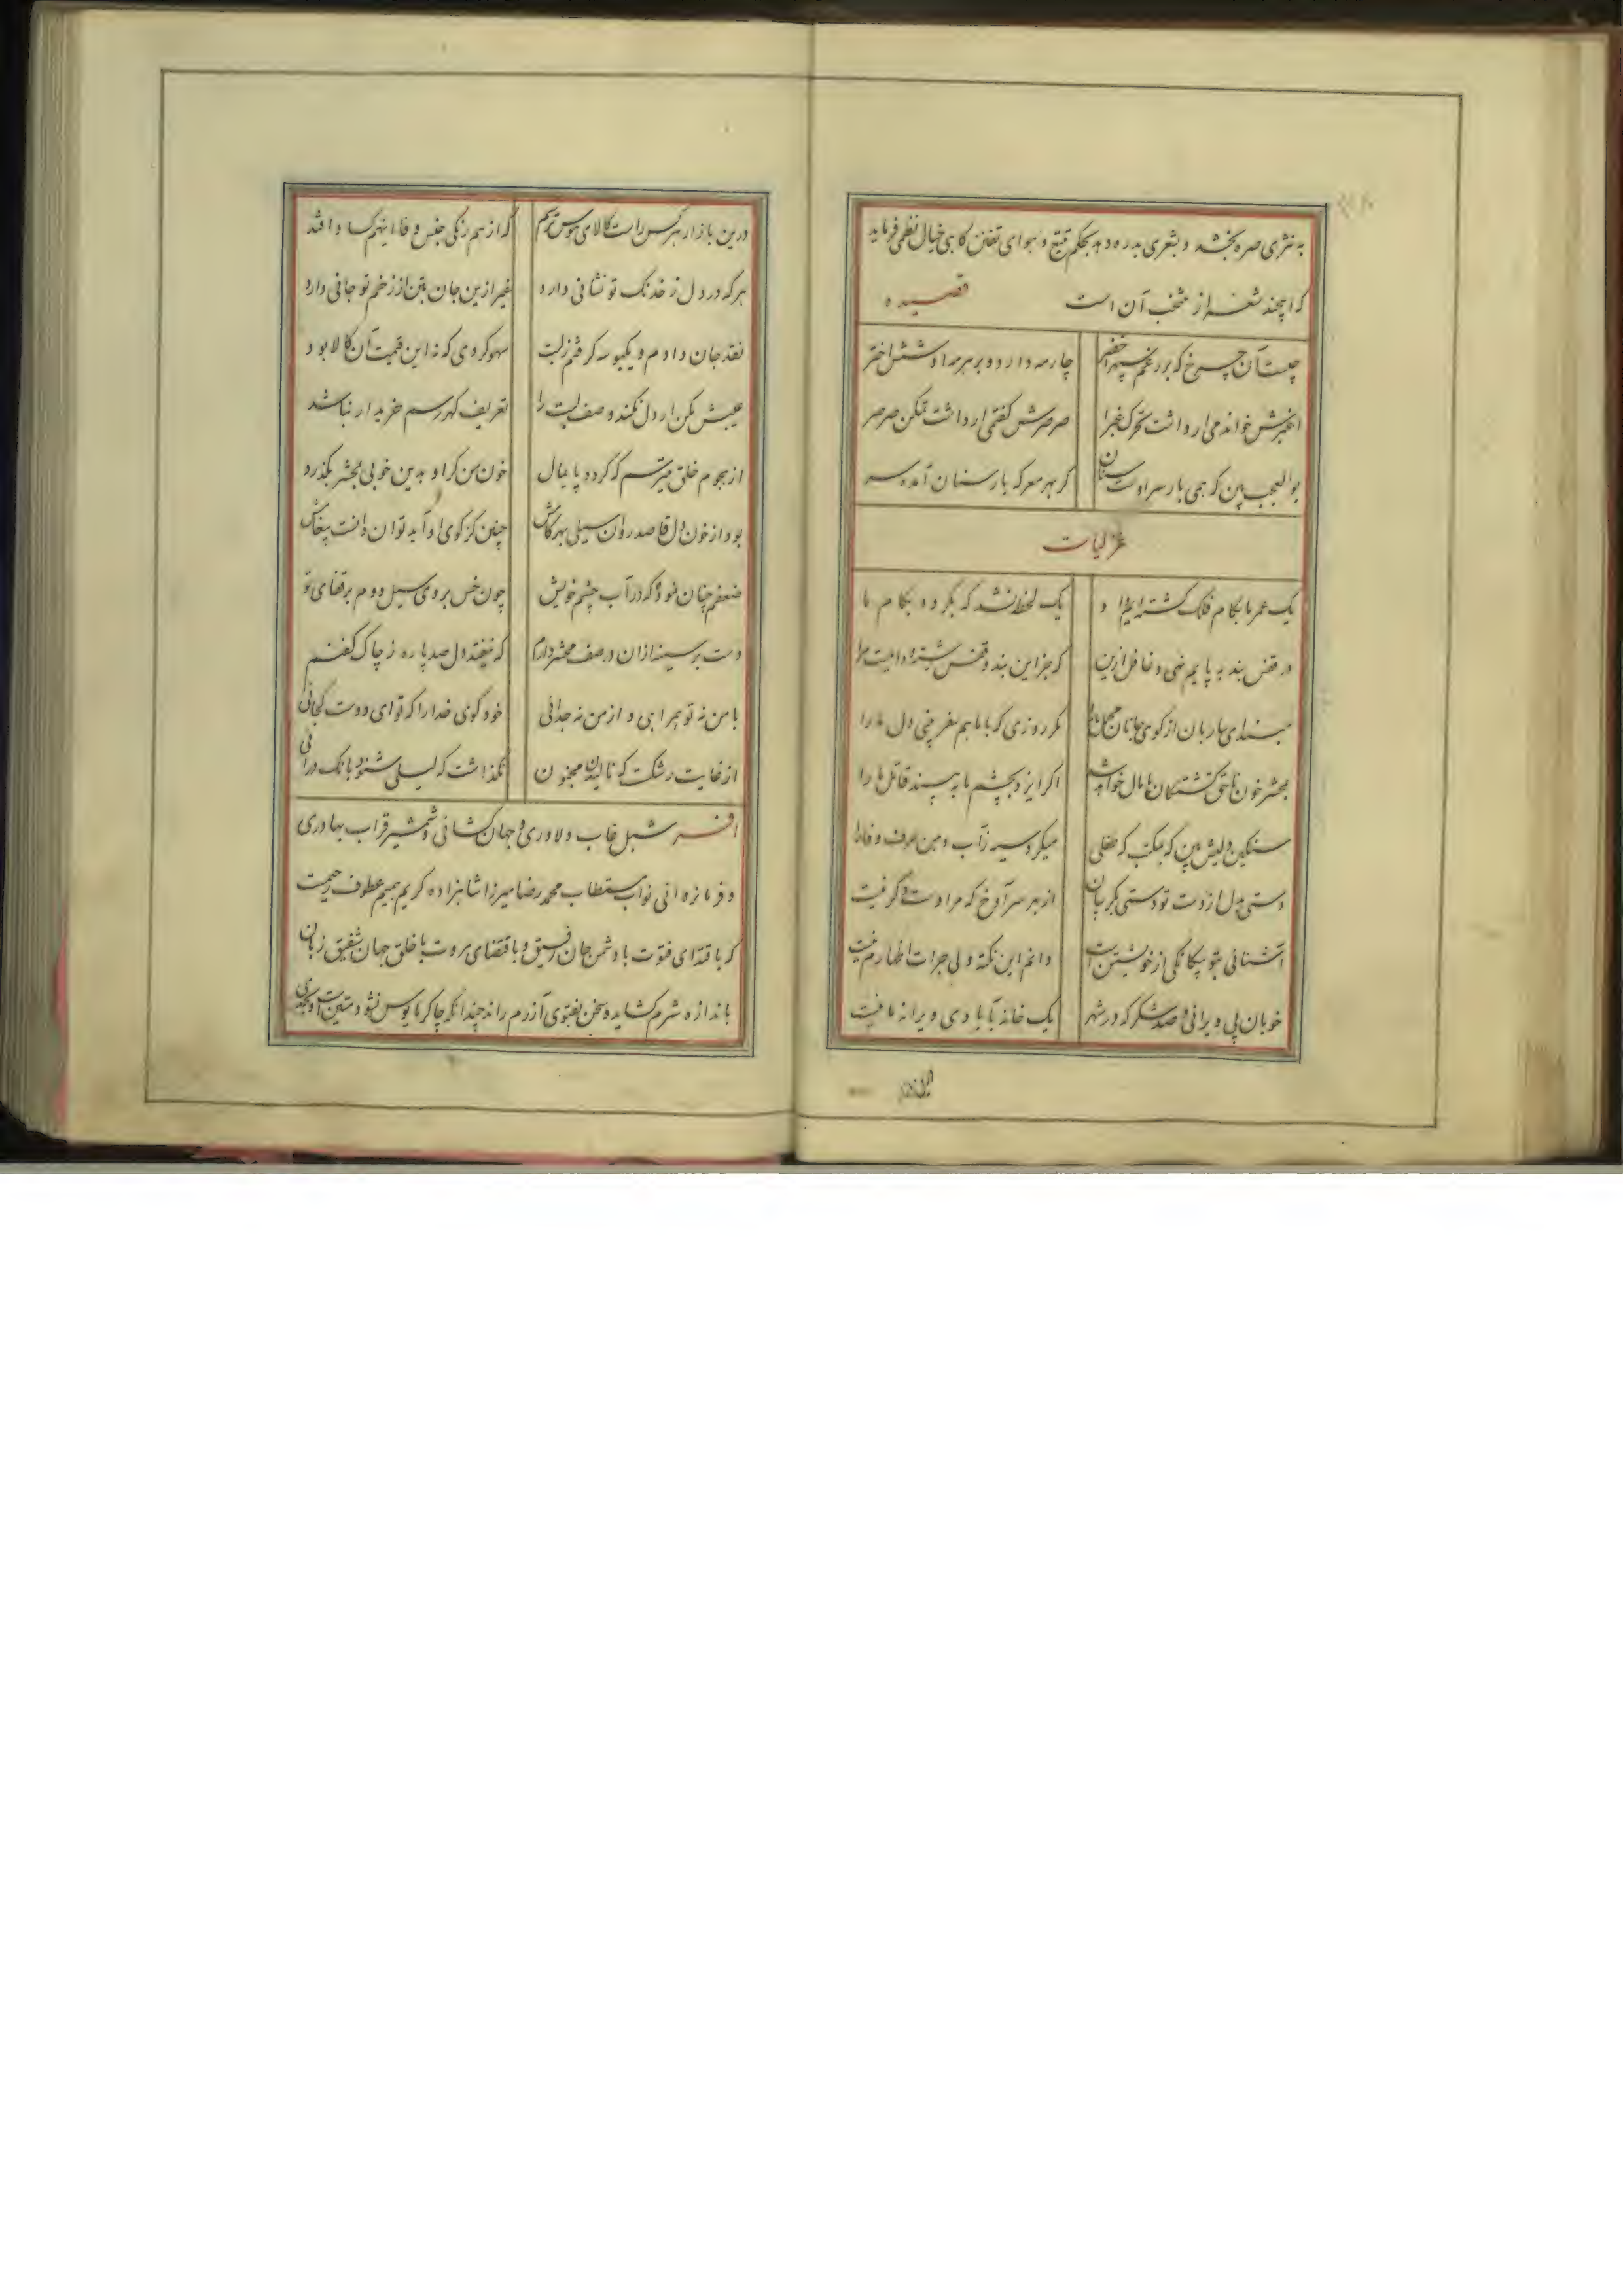 به نثری صره بخشد و بشعری بدره دهد بحکم تتبع و هوای تفنن کاهی خیال نظمی فرماید
که اینچند شعر از منتخب آن است قصیده
چیست آن چرخ که بر رغم سپهر اخضر چار مه دارد و بر هر مه او شش اختر
اغبرش خواندمی ار داشت تحرک غبرا صرصرش گفتمی ار داشت تمکن صرصر
بوالعجب بین که همی بار سر او سنان گر بهر معرکه بار سنان آمده سر
غزلیات
یک عمر ما بکام فلک گشته‌ایم و او یک لحظه نشد که بگردد بکام ما
در قفس بند به پایم نهی و غافل ازین که جز این بند و قفس رشته و دامیست مرا
مبند ای ساربان از کوی جانان محمل ما را مگر روزی که با ما هم سفر بینی دل ما را
بمحشر خون ناحق کشتگان پامال خواهد شد اگر ایزد بچشم ما به بیند قاتل ما را
سنگین دلیش بین که بمکتب که طفلی میکرد سیه ز آب دهن حرف وفا را
دستی بدل از دست تو دستی بگریبان از بهر سر آوخ که مرا دست دگر نیست
آشنائی بتو بیگانگی از خویشتن است دانم این نکته ولی جرات اظهارم نیست
خوبان پی ویرانی و صد شکر که در شهر یک خانه بآبادی ویرانه ما نیست
درین بازار هر کس راست کالای هوس ترسم که از هم رنگی جنس وفا اینهم کساد افتد
هر که در دل ز خدنگ تو نشانی دارد غیر ازین جان بتن از زخم تو جانی دارد
نقد جان دادم و یکبوسه گرفتم ز لبت سهو کردی که نه این قیمت آن کالا بود
عیبش مکن ار دل نکند وصف لبت را تعریف گهر رسم خریدار نباشد
از هجوم خلق میترسم که گردد پایمال خون من گر او بدین خوبی بمحشر بگذرد
بود از خون دل قاصد روان سیلی بهر گامش چنین کز کوی او آید توان دانست پیغامش
ضعفم چنان نمود که در آب چشم خویش چون خس بروی سیل دوم بر قفای تو
دست بر سینه از ان در صف محشر دارم که نیفتد دل صد پاره ز چاک کفنم
با من نه تو همراهی و از من نه جدائی خود گوی خدا را که تو ای دوست کجائی
از غایت رشکت که نالیدن مجنون نگذاشت که لیلی شنود بانک درائی
افسر شبل غاب دلاوری و جهان کشائی و شمشیر قراب بهادری
و فرمانروائی نواب مستطاب محمد رضا میرزا شاهزاده کریم همیم عطوف رحیمست
که باقتدای فتوت با دشمن جان رفیق و باقتضای مروت با خلق جهان شفیق زبان
باندازه شرم گشاید و سخن بفتوی آزرم راند چندانکه چاکر مایوس نشود متین است و بحدی